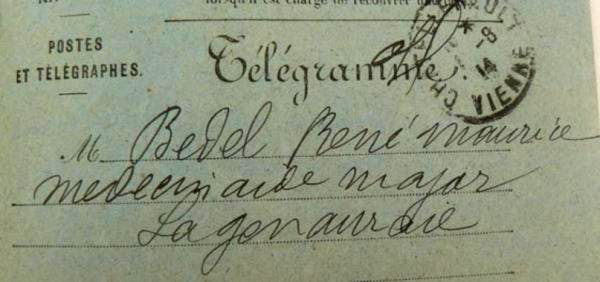 lorsqu'il est chargé de recouvrer
POSTES
ET TÉLÉGRAPHES.
Télégramme.
8
14
VIENNE
M Bedel René maurice
medecin aide major
Lagenauraie